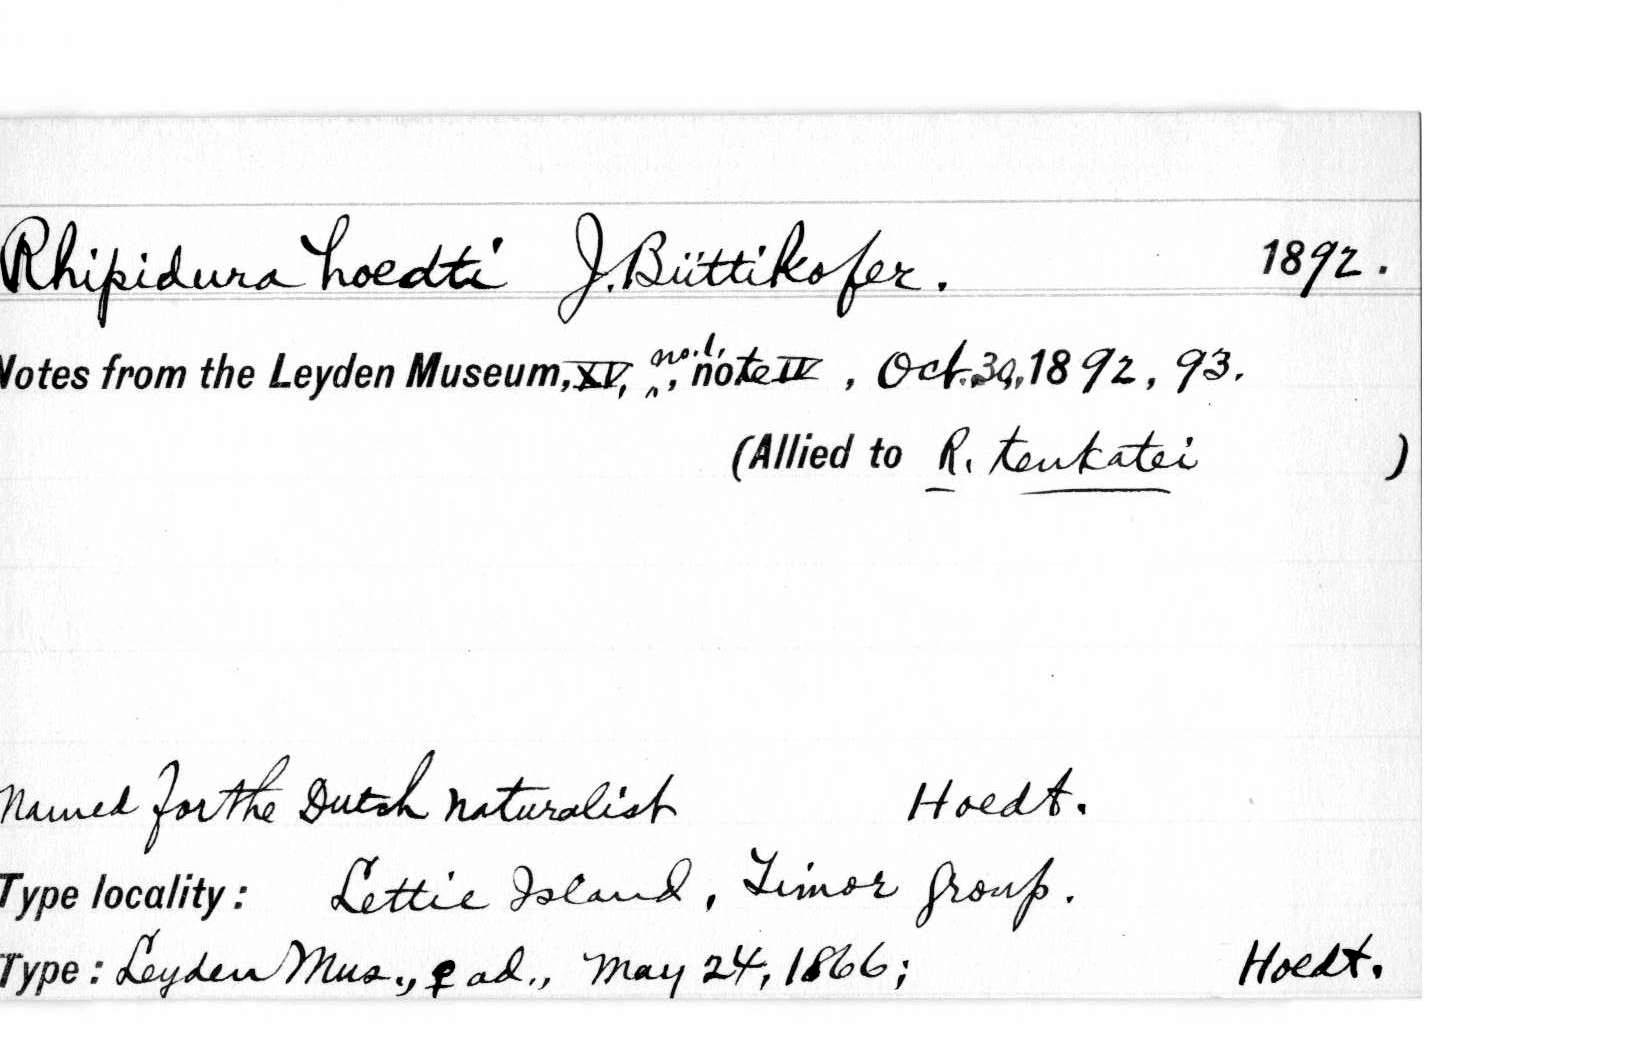 Rhipidura hoedti J. Büttikofer. 1892.
Notes from the Leyden Museum, XV, no. 1, note IV, Oct. 30, 1892, 93.
(Allied to R. tenkatei )
Named for the Dutch naturalist Hoedt.
Type locality: Lettie Island, Timor group.
Type: Leyden Mus., ♀ ad., May 24, 1866; Hoedt.